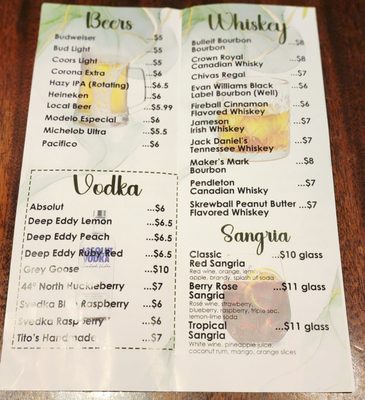 Beers
Budweiser ...$5
Bud Light ...$5
Coors Light ...$5
Corona Extra ...$6
Hazy IPA (Rotating) ...$6.5
Heineken ...$6
Local Beer ...$5.99
Modelo Especial ...$6
Michelob Ultra ...$5.5
Pacifico ...$6
Vodka
Absolut ...$6
Deep Eddy Lemon ...$6.5
Deep Eddy Peach ...$6.5
Deep Eddy Ruby Red ...$6.5
Grey Goose ...$10
44° North Huckleberry ...$7
Svedka Blue Raspberry ...$6
Svedka Raspberry ...$6
Tito's Handmade ...$7
ABSOLUT
VODKA
Whiskey
Bulleit Bourbon ...$8
Bourbon
Crown Royal ...$8
Canadian Whisky
Chivas Regal ...$7
Evan Williams Black ...$6
Label Bourbon (Well)
Fireball Cinnamon ...$6
Flavored Whiskey
Jameson ...$7
Irish Whiskey
Jack Daniel's ...$7
Tennessee Whiskey
Maker's Mark ...$8
Bourbon
Pendleton ...$7
Canadian Whisky
Skrewball Peanut Butter ...$7
Flavored Whiskey
Sangria
Classic ...$10 glass
Red Sangria
Red wine, orange, lem
apple, brandy, splash of soda
Berry Rose ...$11 glass
Sangria
Rose wine, strawberry,
blueberry, raspberry, triple sec,
lemon-lime soda
Tropical ...$11 glass
Sangria
White wine, pineapple juice,
coconut rum, mango, orange slices